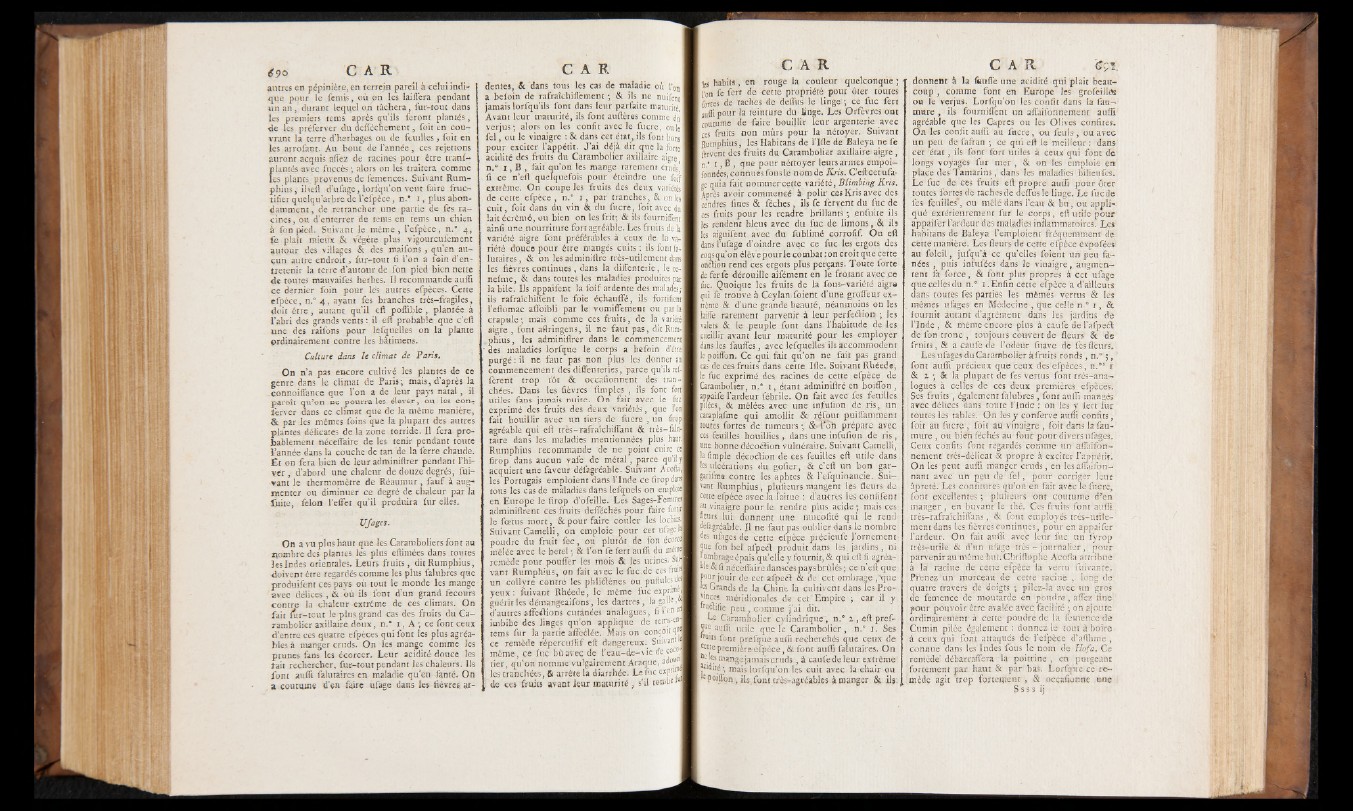 690 CAR
autres en pépinière, en terrein pareil à celui indi-
que pour le ſemis, ou on les laiſſera pendant
un an, durant lequel on tâchera, ſur-tout dans
les premiers tems après qu'ils ſeront plantés,
de les préſerver du deſſéchement, ſoit en cou-
vrant la terre d'herbages ou de feuilles, ſoit en
les arroſant. Au bout de l'année, ces rejettons
auront acquis aſſez de racines pour être tranſ-
plantés avec ſuccès; alors on les traitera comme
les plants provenus de ſemences. Suivant Rum-
phius, il eſt d'uſage, lorſqu'on veut faire fruc-
tifier quelqu'arbre de l'eſpèce, n.° 1, plus abon-
damment, de retrancher une partie de ſes ra-
cines, ou d'enterrer de tems en tems un chien
à ſon pied. Suivant le même, l'eſpèce, n.° 4,
ſe plaît mieux & végète plus vigoureuſement
autour des villages & des maiſons, qu'en au-
cun autre endroit, ſur-tout ſi l'on a ſoin d'en-
tretenir la terre d'autour de ſon pied bien nette
de toutes mauvaiſes herbes. Il recommande auſſi
ce dernier ſoin pour les autres eſpèces. Cette
eſpèce, n.° 4, ayant ſes branches très-fragiles,
doit être, autant qu'il eſt poſſible, plantée à
l'abri des grands vents: il eſt probable que c'eſt
une des raiſons pour leſquelles on la plante
ordinairement contre les bâtimens.
Culture dans le climat de Paris.
On n'a pas encore cultivé les plantes de ce
genre dans le climat de Paris; mais, d'après la
connoiſſance que l'on a de leur pays natal, il
paroît qu'on ne pourra les élever, ou les con-
ſerver dans ce climat que de la même manière,
& par les mêmes ſoins que la plupart des autres
plantes délicates de la zone torride. Il ſera pro-
bablement néceſſaire de les tenir pendant toute
l'année dans la couche de tan de la ſerre chaude.
Et on fera bien de leur adminiſtrer pendant l'hi-
ver, d'abord une chaleur de douze degrés, ſui-
vant le thermomètre de Réaumur, ſauf à aug-
menter ou diminuer ce degré de chaleur par la
ſuite, ſelon l'effet qu'il produira ſur elles.
Uſages.
On a vu plus haut que les Caramboliers ſont au
nombre des plantes les plus eſtimées dans toutes
les Indes orientales. Leurs fruits, dit Rumphius,
doivent être regardés comme les plus ſalubres que
produiſent ces pays où tout le monde les mange
avec délices, & où ils ſont d'un grand ſecours
contre la chaleur extrême de ces climats. On
fait ſur-tout le plus grand cas des fruits du Ca-
rambolier axillaire doux, n.° 1, A; ce ſont ceux
d'entre ces quatre eſpèces qui ſont les plus agréa-
bles à manger cruds. On les mange comme les
prunes ſans les écorcer. Leur acidité douce les
fait rechercher, ſur-tout pendant les chaleurs. Ils
ſont auſſi ſalutaires en maladie qu'en ſanté. On
a coutume d'en faire uſage dans les fièvres ar-
CAR
dentes, & dans tous les cas de maladie où l'on
a beſoin de rafraîchiſſement; & ils ne nuiſent
jamais lorſqu'ils ſont dans leur parfaite maturité.
Avant leur maturité, ils ſont auſtères comme du
verjus; alors on les confit avec le ſucre, ou le
ſel, ou le vinaigre: & dans cet état, ils ſont bons
pour exciter l'appétit. J'ai déjà dit que la forte
acidité des fruits du Carambolier axillaire aigre,
n.° 1, B, fait qu'on les mange rarement cruds,
ſi ce n'eſt quelquefois pour éteindre une ſoif
extrême. On coupe les fruits des deux variétés
de cette eſpèce, n.° 1, par tranches, & on les
cuit, ſoit dans du vin & du ſucre, ſoit avec du
lait écrêmé, ou bien on les frit; & ils fourniſſent
ainſi une nourriture fort agréable. Les fruits de la
variété aigre ſont préférables à ceux de la va-
riété douce pour être mangés cuits: ils ſont ſa-
lutaires, & on les adminiſtre très-utilement dans
les fièvres continues, dans la diſſenterie, le té-
neſme, & dans toutes les maladies produites par
la bile. Ils appaiſent la ſoif ardente des malades;
ils rafraîchiſſent le foie échauffé, ils fortifient
l'eſtomac affoibli par le vomiſſement ou par la
crapule; mais comme ces fruits, de la variété
aigre, ſont aſtringens, il ne faut pas, dit Rum-
phius, les adminiſtrer dans le commencement
des maladies lorſque le corps a beſoin d'être
purgé: il ne faut pas non plus les donner au
commencement des diſſenteries, parce qu'ils reſ-
ſèrent trop tôt & occaſionnent des tran-
chées. Dans les fièvres ſimples, ils ſont fort
utiles ſans jamais nuire. On fait avec le ſuc
exprimé des fruits des deux variétés, que l'on
fait bouillir avec un tiers de ſucre, un ſirop
agréable qui eſt très-rafraîchiſſant & très-ſalu-
taire dans les maladies mentionnées plus haut.
Rumphius recommande de ne point cuire ce
ſirop dans aucun vaſe de métal, parce qu'il y
acquiert une ſaveur déſagréable. Suivant Acoſta,
les Portugais emploient dans l'Inde ce ſirop dans
tous les cas de maladies dans leſquels on emploie
en Europe le ſirop d'oſeille. Les Sages-Femmes
adminiſtrent ces fruits deſſéchés pour faire ſortir
le fœtus mort, & pour faire couler les lochies.
Suivant Camelli, on emploie pour cet uſage la
poudre du fruit ſec, ou plutôt de ſon écorce,
mêlée avec le betel; & l'on ſe ſert auſſi du même
remède pour pouſſer les mois & les urines. Sui-
vant Rumphius, on fait avec le ſuc de ces fruits
un collyre contre les phlictènes ou puſtules des
yeux: ſuivant Rhéede, le même ſuc exprimé,
guérit les démangeaiſons, les dartres, la galle, &
d'autres affections cutanées analogues, ſi l'on en
imbibe des linges qu'on applique de tems en
tems ſur la partie affectée. Mais on conçoit que
ce remède répercuſſif eſt dangereux. Suivant le
même, ce ſuc bû avec de l'eau-de-vie de coco-
tier, qu'on nomme vulgairement Araque, adoucit
les tranchées, & arrête la diarrhée. Le ſuc exprimé
de ces fruits avant leur maturité, s'il tombe ſur
CAR
les habits, en rouge la couleur quelconque;
l'on ſe ſert de cette propriété pour ôter toutes
ſortes de taches de deſſus le linge; ce ſuc ſert
auſſi pour la teinture du linge. Les Orfèvres ont
coutume de faire bouillir leur argenterie avec
ces fruits non mûrs pour la nétoyer. Suivant
Rumphius, les Habitans de l'Iſle de Baleya ne ſe
ſervent des fruits du Carambolier axillaire-aigre,
n.° 1, B, que pour néttoyer leurs armes empoi-
ſonnées, connues ſous le nom de Kris. C'eſt cet uſa-
ge qui a fait nommer cette variété, Blimbing Kris.
Après avoir commencé à polir ces Kris avec des
cendres fines & ſéches, ils ſe ſervent du ſuc de
ces fruits pour les rendre brillants; enſuite ils
les rendent bleus avec du ſuc de limons, & ils
les aiguiſent avec du ſublimé corroſif. On eſt
dans l'uſage d'oindre avec ce ſuc les ergots des
coqs qu'on élève pour le combat: on croit que cette
onction rend ces ergots plus perçans. Toute ſorte
de fer ſe dérouille aiſément en le frotant avec ce
ſuc. Quoique les fruits de la ſous-variété aigre
qui ſe trouve à Ceylan ſoient d'une groſſeur ex-
trême & d'une grande beauté, néanmoins on les
laiſſe rarement parvenir à leur perfection; les
valets & le peuple ſont dans l'habitude de les
cueillir avant leur maturité pour les employer
dans les ſauſſes, avec leſquelles ils accommodent
le poiſſon. Ce qui fait qu'on ne fait pas grand
cas de ces fruits dans cette Iſle. Suivant Rhéede,
le ſuc exprimé des racines de cette eſpèce de
Carambolier, n.° 1, étant adminiſtré en boiſſon,
appaiſe l'ardeur fébrile. On fait avec ſes feuilles
pilées, & mêlées avec une infuſion de ris, un
cataplaſme qui amollit & réſout puiſſamment
toutes ſortes de tumeurs; & l'on prépare avec
ces feuilles bouillies, dans une infuſion de ris,
une bonne décoction vulnéraire. Suivant Camelli,
la ſimple décoction de ces feuilles eſt utile dans
les ulcérations du goſier, & c'eſt un bon gar-
gariſme contre les aphtes & l'eſquinancie. Sui-
vant Rumphius, pluſieurs mangent les fleurs de
cette eſpèce avec la laitue: d'autres les confiſent
au vinaigre pour le rendre plus acide; mais ces
fleurs lui donnent une mucoſité qui le rend
déſagréable. Il ne faut pas oublier dans le nombre
des uſages de cette eſpèce précieuſe l'ornement
que ſon bel aſpect produit dans les jardins, ni
l'ombrage épais qu'elle y fournit, & qui eſt ſi agréa-
ble & ſi néceſſaire dans ces pays brûlés; ce n'eſt que
pour jouir de cet aſpect & de cet ombrage, que
les Grands de la Chine la cultivent dans les Pro-
vinces méridionales de cet Empire, car il y
fructifie peu, comme j'ai dit.
Le Carambolier cylindrique, n.° 2, eſt preſ-
que auſſi utile que le Carambolier, n.° 1. Ses
fruits ſont preſque auſſi recherchés que ceux de
cette première eſpèce, & ſont auſſi ſalutaires. On
ne les mange jamais cruds, à cauſe de leur extrême
acidité; mais lorſqu'on les cuit avec la chair ou
le poiſſon, ils ſont très-agréables à manger & ils
CAR 691
donnent à la ſauſſe une acidité qui plaît beau-
coup, comme font en Europe les groſeilles
ou le verjus. Lorſqu'on les confit dans la ſau-
mure, ils fourniſſent un aſſaiſonnement auſſi
agréable que les Capres ou les Olives confites.
On les confit auſſi au ſucre, ou ſeuls, ou avec
un peu de ſafran; ce qui eſt le meilleur: dans
cet état, ils ſont fort utiles à ceux qui font de
longs voyages ſur mer, & on les emploie en
place des Tamarins, dans les maladies bilieuſes.
Le ſuc de ces fruits eſt propre auſſi pour ôter
toutes ſortes de taches de deſſus le linge. Le ſuc de
ſes feuilles, ou mêlé dans l'eau & bu, ou appli-
qué extérieurement ſur le corps, eſt utile pour
appaiſer l'ardeur des maladies inflammatoires. Les
habitans de Baleya l'emploient fréquemment de
cette manière. Les fleurs de cette eſpèce expoſées
au ſoleil, juſqu'à ce qu'elles ſoient un peu fa-
nées, puis infuſées dans le vinaigre, augmen-
tent ſa force, & ſont plus propres à cet uſage
que celles du n.° 1. Enfin cette eſpèce a d'ailleurs
dans toutes ſes parties les mêmes vertus & les
mêmes uſages en Médecine, que celle n.° 1, &
fournit autant d'agrément dans les jardins de
l'Inde, & même encore plus à cauſe de l'aſpect
de ſon tronc, toujours couvert de fleurs & de
fruits, & à cauſe de l'odeur ſuave de ſes fleurs.
Les uſages du Carambolier à fruits ronds, n.° 3,
ſont auſſi précieux que ceux des eſpèces, n.os 1
& 2; & la plupart de ſes vertus ſont très-ana-
logues à celles de ces deux premières eſpèces.
Ses fruits, également ſalubres, ſont auſſi mangés
avec délices dans toute l'Inde; on les y ſert ſur
toutes les tables. On les y conſerve auſſi confits,
ſoit au ſucre, ſoit au vinaigre, ſoit dans la ſau-
mure, ou bien ſéchés au four pour divers uſages.
Ceux confits ſont regardés comme un aſſaiſon-
nement très-délicat & propre à exciter l'appétit.
On les peut auſſi manger cruds, en les aſſaiſon-
nant avec un peu de ſel, pour corriger leur
âpreté. Les confitures qu'on en fait avec le ſucre,
ſont excellentes; pluſieurs ont coutume d'en
manger, en buvant le thé. Ces fruits ſont auſſi
très-rafraîchiſſans, & ſont employés très-utile-
ment dans les fièvres continues, pour en appaiſer
l'ardeur. On fait auſſi avec leur ſuc un ſyrop
très-utile & d'un uſage très-journalier, pour
parvenir au même but. Chriſtophe Acoſta attribue
à la racine de cette eſpèce la vertu ſuivante.
Prenez un morceau de cette racine, long de
quatre travers de doigts; pilez-la avec un gros
de ſemence de moutarde en poudre, aſſez fine
pour pouvoir être avalée avec facilité; on ajoute
ordinairement à cette poudre de la ſemence de
Cumin pilée également: donnez le tout à boire
à ceux qui ſont attaqués de l'eſpèce d'aſthme,
connue dans les Indes ſous le nom de Hoſa. Ce
remède débarraſſera la poitrine, en purgeant
fortement par haut & par bas. Lorſque ce re-
mède agit trop fortement, & occaſionne une
Ssss ij